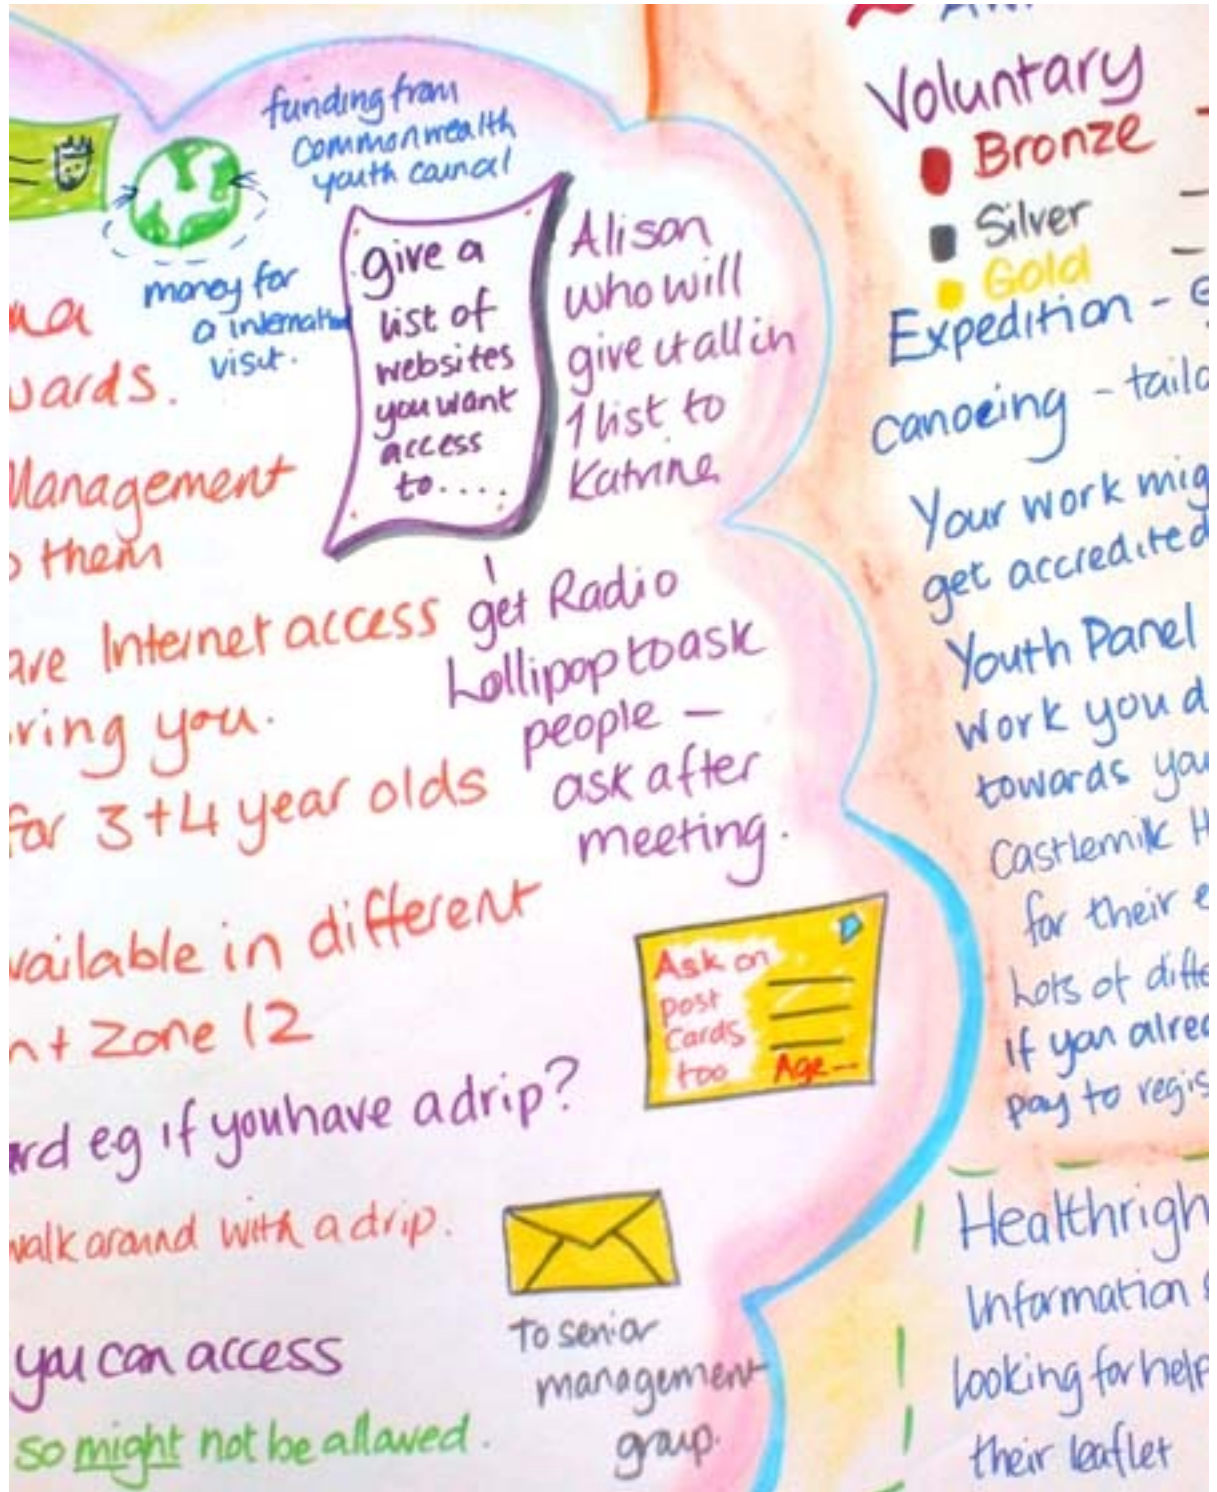 funding from
Commonwealth
youth council
money for
a internation
visit.
give a
list of
websites
you want
access
to....
Alison
who will
give it all in
1 list to
Katrine
wards.
Management
them
are Internet access
ring you.
for 3+4 year olds
get Radio
Lollipop to ask
people –
ask after
meeting.
available in different
Zone 12
Ask on
post
Cards
too
Age--
eg if you have a drip?
walk around with a drip.
To senior
management
group.
you can access
so might not be allowed.
Voluntary
Bronze
Silver
Gold
Expedition -
canoeing -
Your work
get accredited
Youth Panel
work you
towards
Castlemilk
for their
Lots of
If yan
pay to
Information
looking for help
their leaflet